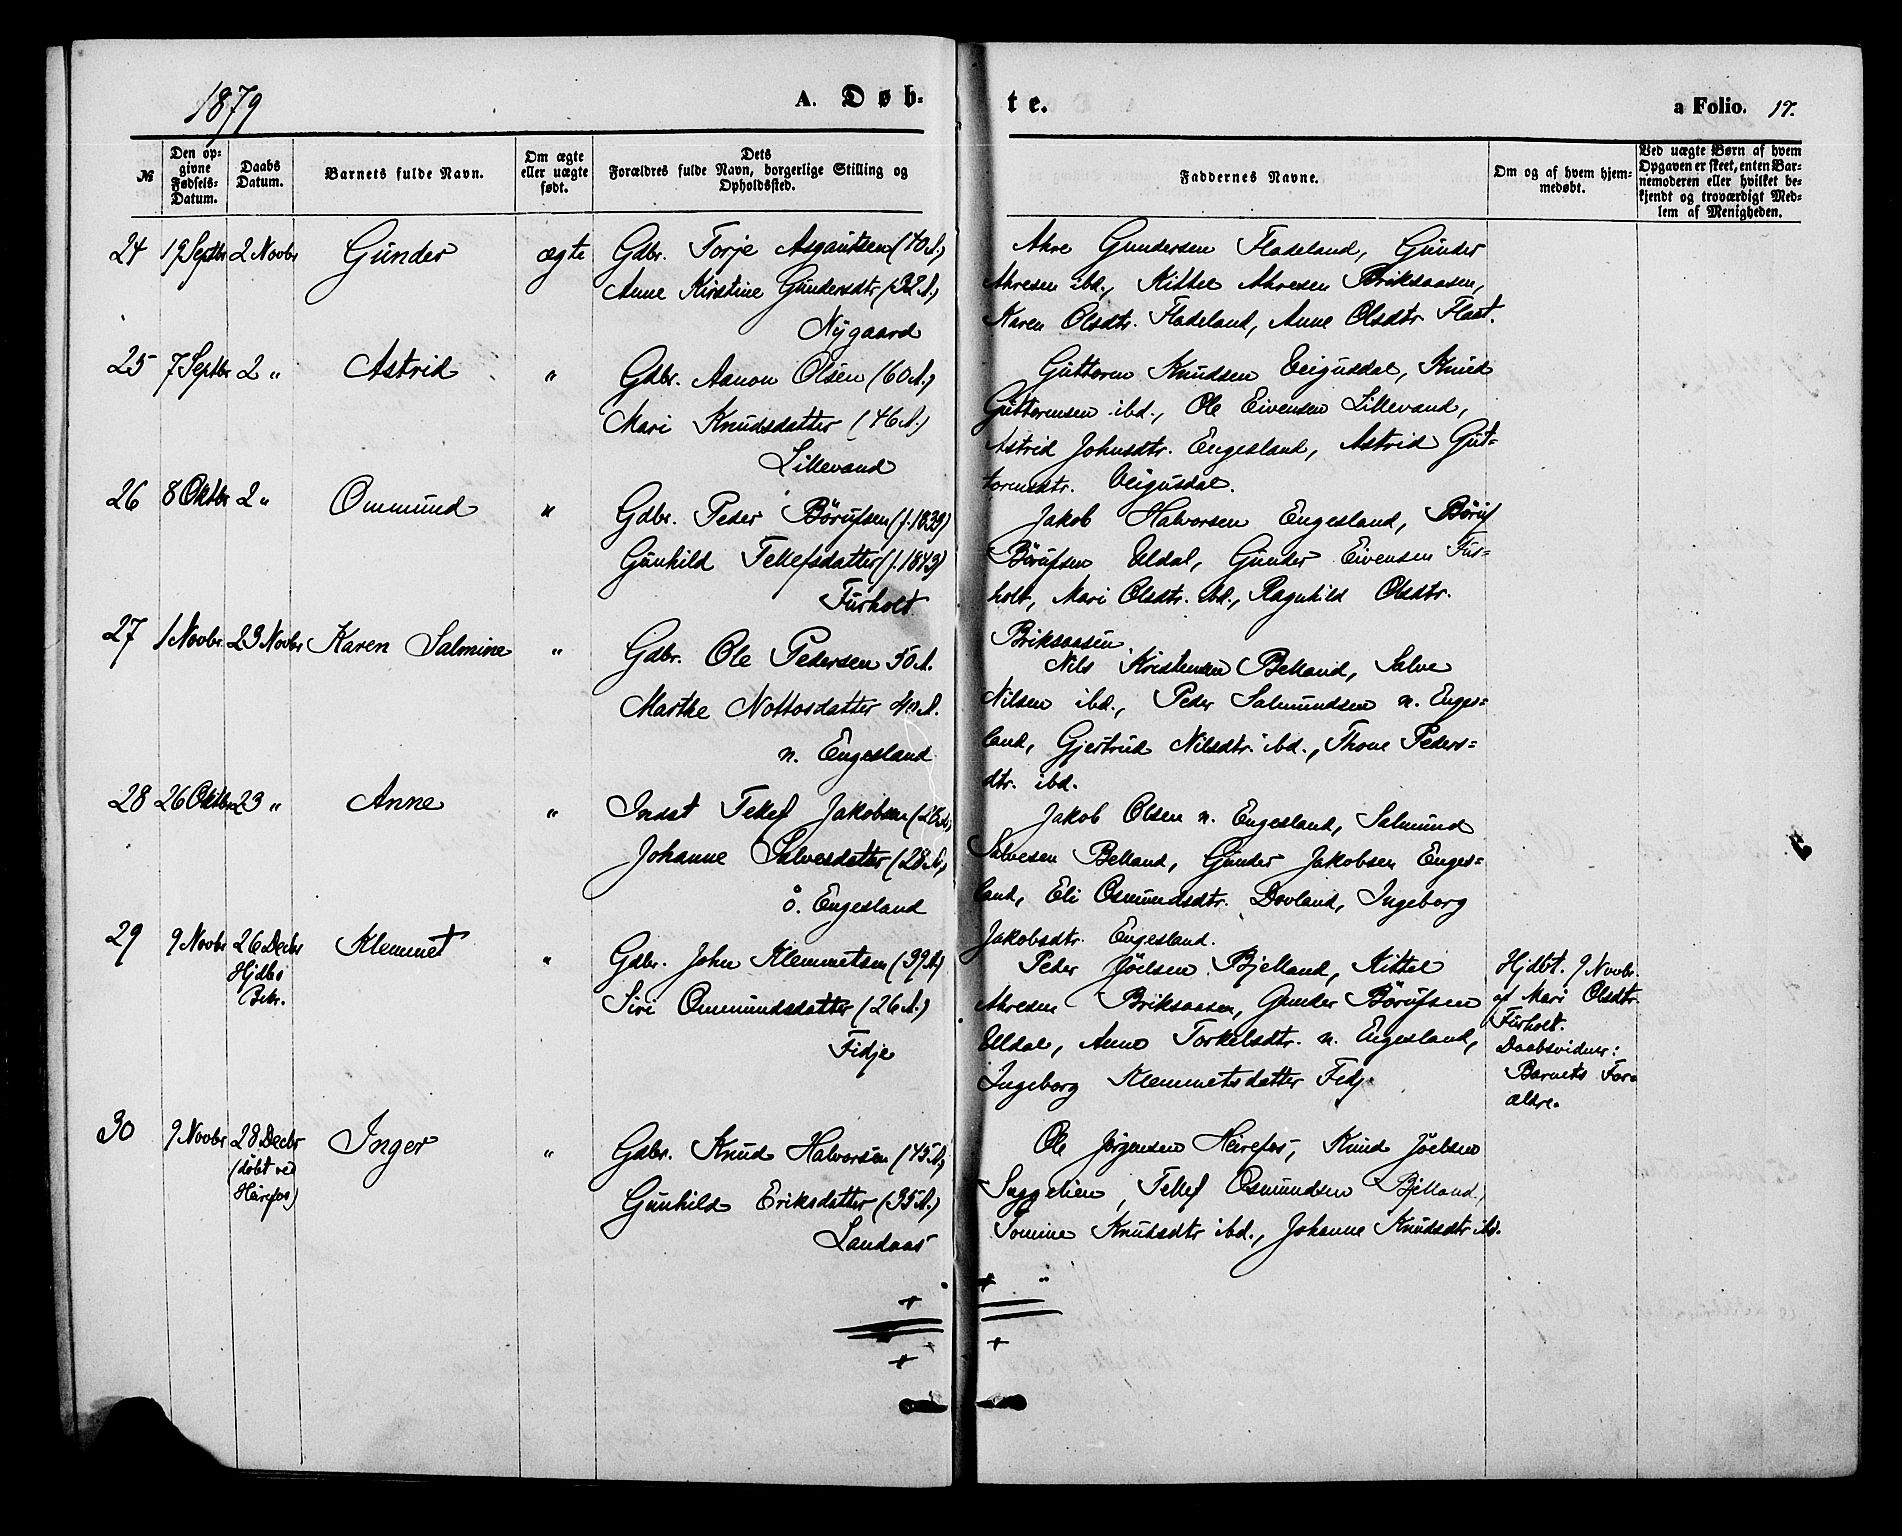 1879
A. Døb-
te.
a Folio. 17.
№
Den op-
givne
Fødsels-
Datum.
Daabs
Datum.
Barnets fulde Navn.
Om ægte
eller uægte
født.
Dets
Forældres fulde Navn, borgerlige Stilling og
Opholdssted.
Faddernes Navne.
Om og af hvem hjem-
medøbt.
Ved uægte Børn af hvem
Opgaven er skeet, enten Bar-
nemoderen eller hvilket be-
kjendt og troværdigt Med-
lem af Menigheden.
24 19 Septbr 2 Novbr Gunder ægte Gdbr. Torje Asgautsen (40 A.)
Anne Kirstine Gundersdtr (32 A.)
Nygaard
Akre Gundersen Fladeland, Gunder
Akresen ibd., Kittel Akresen Briksaasen,
Karen Olsdtr. Fladeland, Anne Olsdtr Flaat.
25 7 Septbr 2 " Astrid " Gdbr. Aanon Olsen (60 A.)
Mari Knudsdatter (46 A.)
Lillevand
Guttorm Knudsen Veigusdal, Knud
Guttormsen ibd., Ole Eivensen Lillevand,
Astrid Johnsdtr. Engesland, Astrid Gut-
tormsdtr. Veigusdal.
26 8 Oktbr 2 " Ommund " Gdbr. Peder Børufsen (f. 1839)
Gunhild Tellefsdatter (f. 1843)
Furholt
Jakob Halvorsen Engesland, Børuf
Børufsen Uldal, Gunder Eivensen Fur-
holt, Mari Olsdtr. ibd., Ragnhild Olsdtr.
Briksaasen.
27 1 Novbr 23 Novbr Karen Salmine " Gdbr. Ole Pedersen 50 A.
Marthe Nottosdatter 40 A.
n. Engesland
Nils Kristensen Belland, Salve
Nilsen ibd., Peder Salmundsen n. Enges-
land, Gjertrud Nilsdtr. ibd., Thone Peders-
dtr. ibd.
28 26 Oktbr 23 " Anne " Indst Tellef Jakobsen (28 A.)
Johanne Salvesdatter (28 A.)
ö. Engesland
Jakob Olsen n. Engesland, Salmund
Salvesen Belland, Gunder Jakobsen Enges-
land, Eli Osmundsdtr. Dovland, Ingeborg
Jakobsdtr. Engesland.
29 9 Novbr 26 Decbr Klemmet " Gdbr. John Klemmetsen (39 A.)
Hjdbs
Bekr.
Siri Ommundsdatter (26 A.)
Fidje
Peder Jöelsen Bjelland, Kittel
Akresen Briksaasen, Gunder Børufsen
Uldal, Anne Torkelsdtr. n. Engesland,
Ingeborg Klemmetsdatter Fidj.
Hjdbt. 9 Novbr.
af Mari Olsdtr.
Furholt.
Daabsvidner:
Barnets For-
ældre.
30 9 Novbr 28 Decbr Inger " Gdbr. Knud Halvorsen (45 A.)
(döbt ved
Heirefos)
Gunhild Eriksdatter (35 A.)
Landaas
Ole Jörgensen Heirefos, Knud Jöelsen
Tellef Osmundsen Bjelland,
Tomine Knudsdtr ibd., Johanne Knudsdtr ibd.